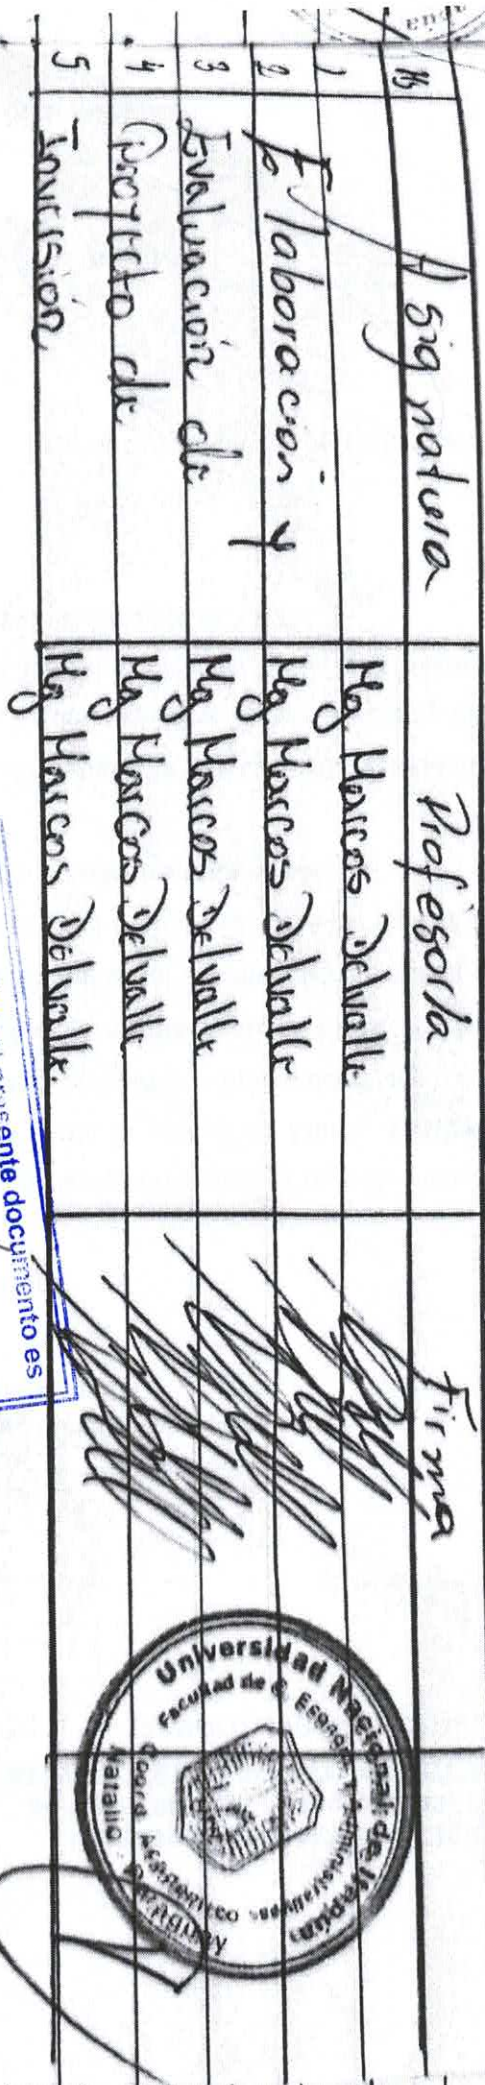 Hs Asignatura Profesor/a Firma
1 Mg. Marcos Delvalle
2 Elaboracion y Mg Marcos Delvalle
3 Evaluación de Mg Marcos Delvalle
4 Proyecto de Mg Marcos Delvalle
5 Inversión Mg Marcos Delvalle.
Universidad Nacional de Itapúa
Facultad de C. Económ. y Administrativas
Coord. Académico
Natalio - Paraguay
presente documento es
apúa